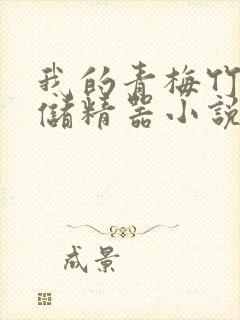 我的青梅竹
儲精器小説
成景